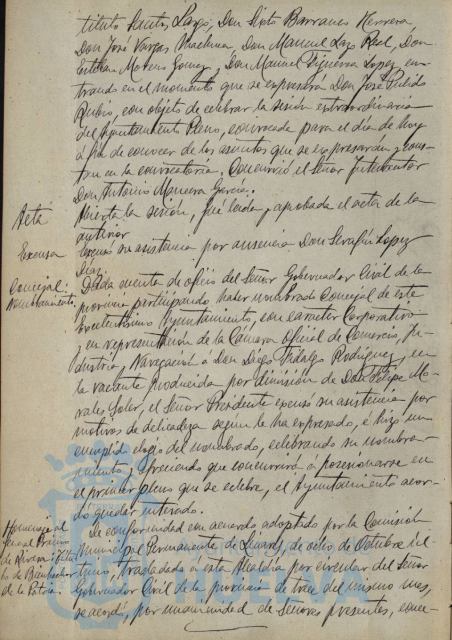 tituto Santos Lazo, Don Sixto Barranco Herrera,
Don José Vargas Machuca, Don Manuel Lazo Real, Don
Esteban Moreno Gomez, Don Manuel Figueroa Lopez, en-
trando en el momento que se expresará Don José Pulido
Rubio, con objeto de celebrar la sesión extraordinaria
del Ayuntamiento Pleno, convocada para el dia de hoy
á fin de conocer de los asuntos que se expresarán y cons-
tan en la convocatoria. Concurrió el Señor Interventor
Don Antonio Garcia.
Acta
Abierta la sesión, fué leida y aprobada el acta de la
anterior
Excusa
Excusó su asistencia por ausencia Don Serafin Lopez
Diaz.
Concejal:
Nombramiento.
Dada cuenta de oficio del Señor Gobernador Civil de la
provincia participando haber nombrado Concejal de este
Excelentisimo Ayuntamiento, con caracter Corporativo
y en representación de la Cámara Oficial de Comercio, In-
dustria y Navegación á Don Diego Fidalgo Rodriguez, en
la vacante producida por dimisión de Don Felipe Mo-
rales Soler, el Señor Presidente excusó su asistencia por
motivos de delicadeza segun le ha expresado, e hizo un
cumplido elogio del nombrado, celebrando su nombra-
miento, y creciendo que concurrirá á posesionarse en
el primer pleno que se celebre, el Ayuntamiento acor-
dó quedar enterado.
Homenaje al
General Primo
de Rivera: titu-
lo de Bienhechor
de la Patria.
De conformidad con acuerdo adoptado por la Comisión
Municipal Permanente de Lunes de ocho de Octubre úl-
timo, trasladado á esta Alcaldia por circular del Señor
Gobernador Civil de la provincia de trece del mismo mes,
se acordó, por unanimidad de Señores presentes, conce-